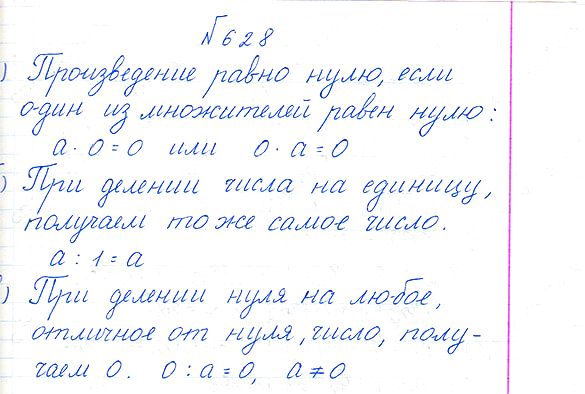 №628
) Произведение равно нулю, если
один из множителей равен нулю:
а · 0 = 0 или 0 · а = 0
) При делении числа на единицу,
получаем то же самое число.
а : 1 = а
) При делении нуля на любое,
отличное от нуля, число, полу-
чаем 0. 0 : а = 0, а ≠ 0